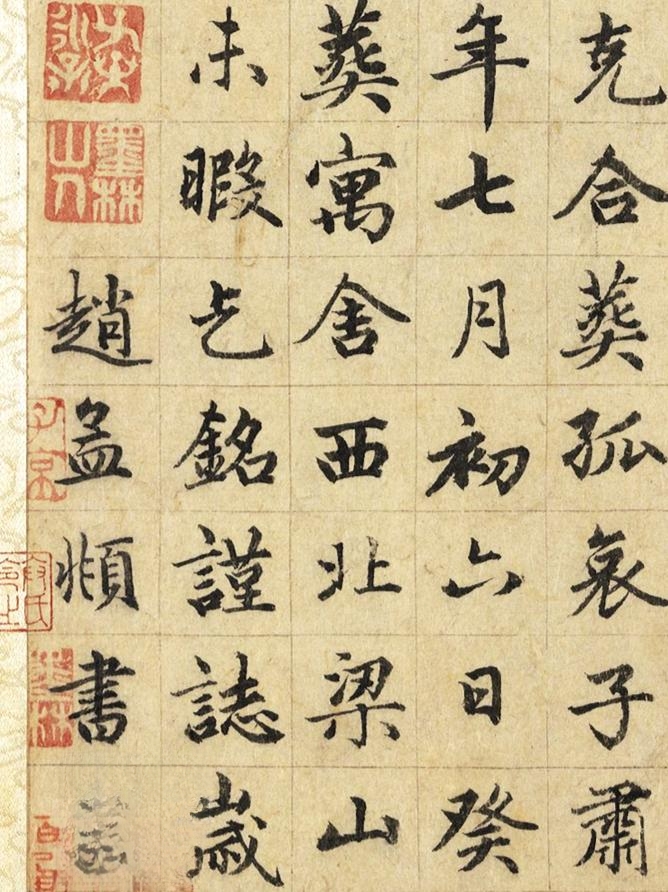 克合葬孤哀子肅
年七月初六日癸
葬寓舍西北梁山
未暇乞銘謹誌歲
趙孟頫書
墨林山人
子京